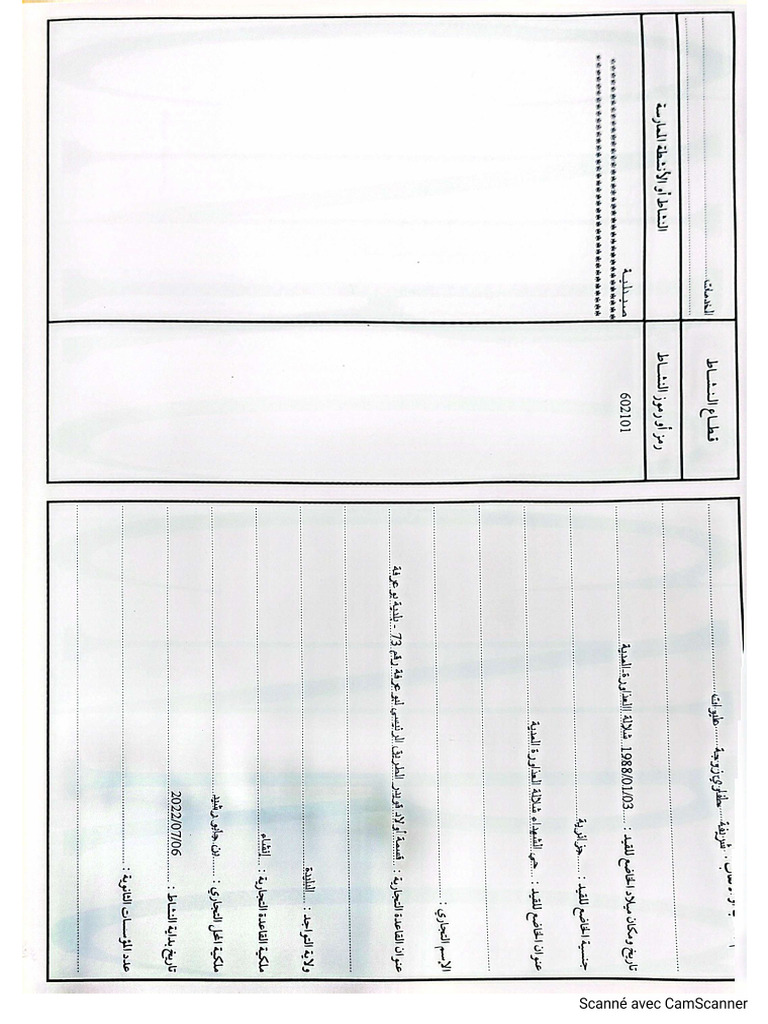 شريفة حلفاوي زوجة عليوات
تاريخ ومكان ميلاد الخاضع للقيد : 1988/01/03 شلالة العذاورة-المدية
جنسية الخاضع للقيد : جزائرية
عنوان الخاضع للقيد : حي الشهداء شلالة العذاورة المدية
الإسم التجاري :
عنوان القاعدة التجارية : قسمة أولاد قويدر الطريق الرئيسي لبوعرفة رقم 73 - بلدية بوعرفة
ولاية التواجد : البليدة
ملكية القاعدة التجارية : إنشاء
ملكية المحل التجاري : بن جابو رشيد
تاريخ بداية النشاط : 2022/07/06
عدد المؤسسات الثانوية :
قطاع النشاط الخدمات
رمز أو رموز النشاط النشاط أو الأنشطة الممارسة
602101 صيدلية
Scanné avec CamScanner